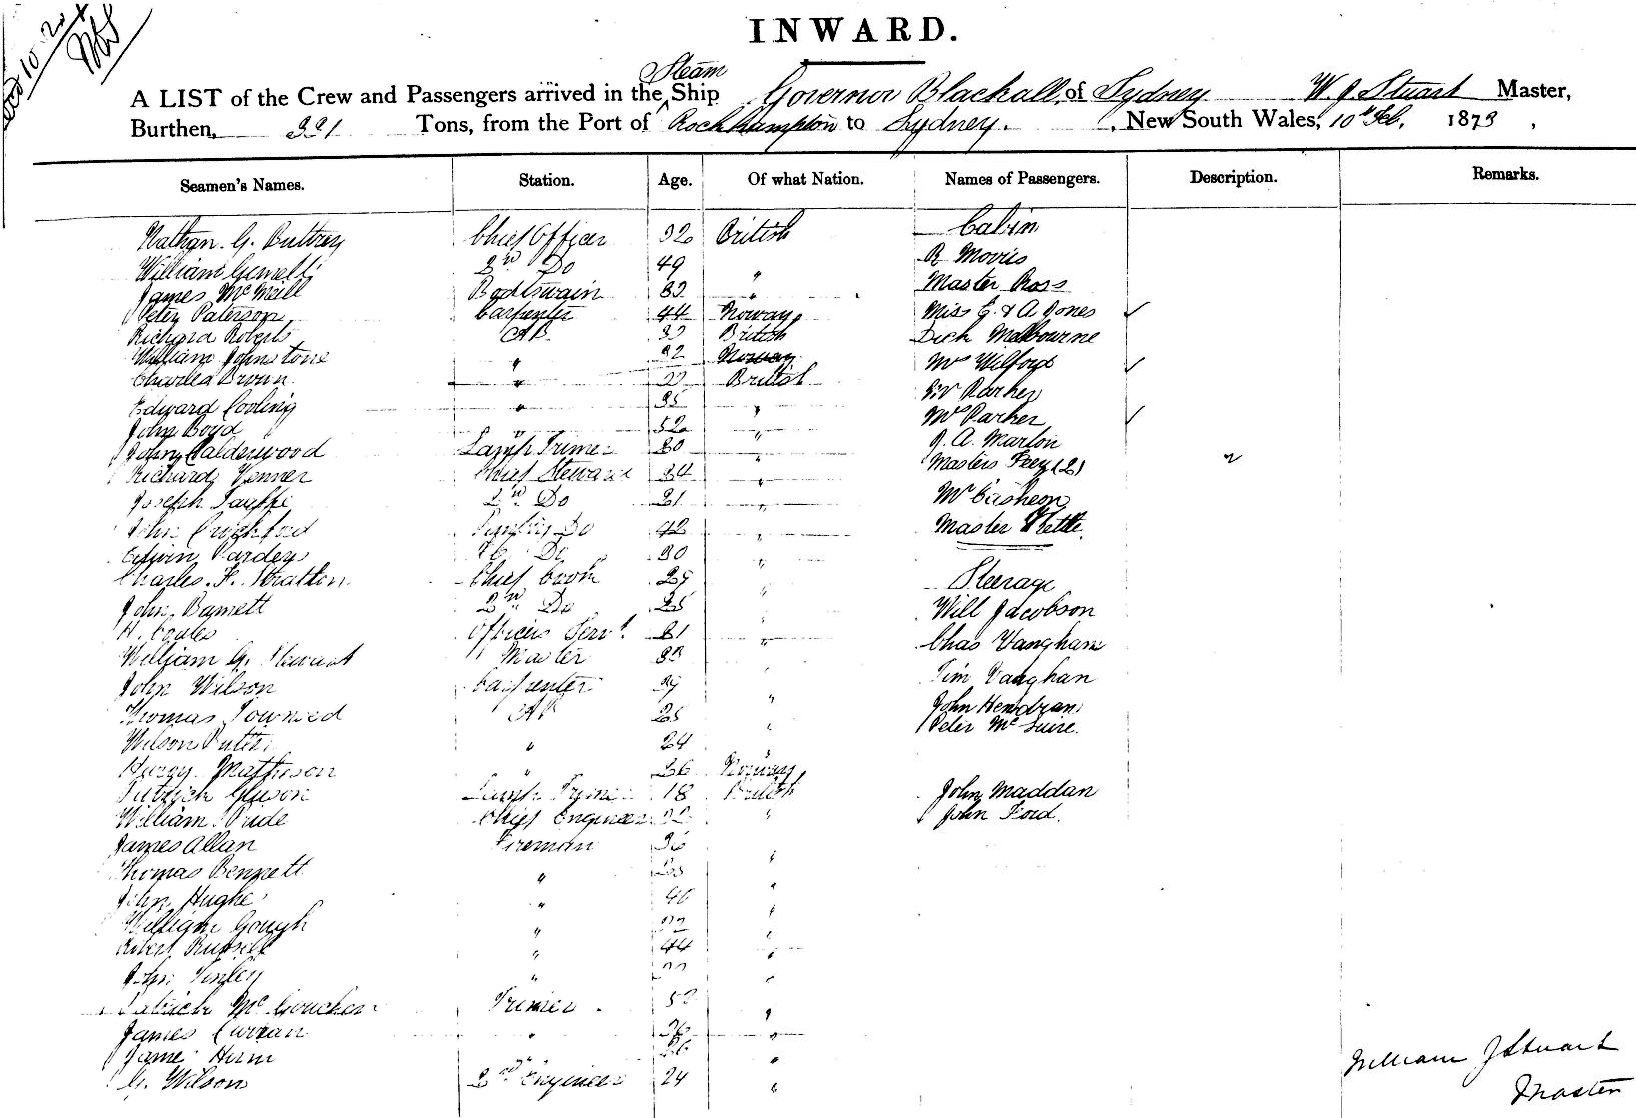 INWARD.
Steam
A LIST of the Crew and Passengers arrived in the Ship Governor Blackall of Sydney W. J. Stuart Master,
Burthen, 321 Tons, from the Port of Rockhampton to Sydney. New South Wales, 10th Feb. 1873,
Seamen's Names. Station. Age. Of what Nation. Names of Passengers. Description. Remarks.
Nathan G. Buttrey Chief Officer 32 British Cabin
William 2nd Do 49 " R Morris
James McNeill Boatswain 32 " Master Ross
Peter Paterson Carpenter 44 Noway Miss E. & A Jones
Richard Roberts AB 32 British Dick Melbourne
William Johnstone " 32 Noway Mrs Wilford
Charles Brown " 33 British Mr Parker
Edward Cooling " 35 " Mrs Parker
John Boyd " 52 " J. A. Marlon
John Calderwood Lamp Trimer 30 " Masters Frey (2)
Richard Venner Chief Steward 34 " Mr
Joseph 2nd Do 31 " Master Kettle
John Do 42 "
Edwin Pardey Do 30 "
Charles F. Stratton Chief Cook 29 " Steerage
John Barnett 2nd Do 25 " Will Jacobson
H. Coules Officers Servt. 31 " Chas Vaughham
William G. Stewart Master 33 " Tim Vaughan
John Wilson Carpenter 39 " John Hendran
Thomas Townsed AB 25 " Peter McGuire.
Wilson " 24 "
Henry Mathison " 26 Noway
Patrick Gluson Lamp Trimer 18 British John Maddan
William Pride Chief Engineer 32 " John Ford.
James Allan Fireman 36 "
Thomas Bennett " "
John Hughes " 40 "
William Gough " "
Robert Russell " 44 "
John Finley " "
Patrick Trimer 52 "
James Curran " 36 "
James " 26 "
G. Wilson 2nd Engineer 24 "
William J Stuart
Master